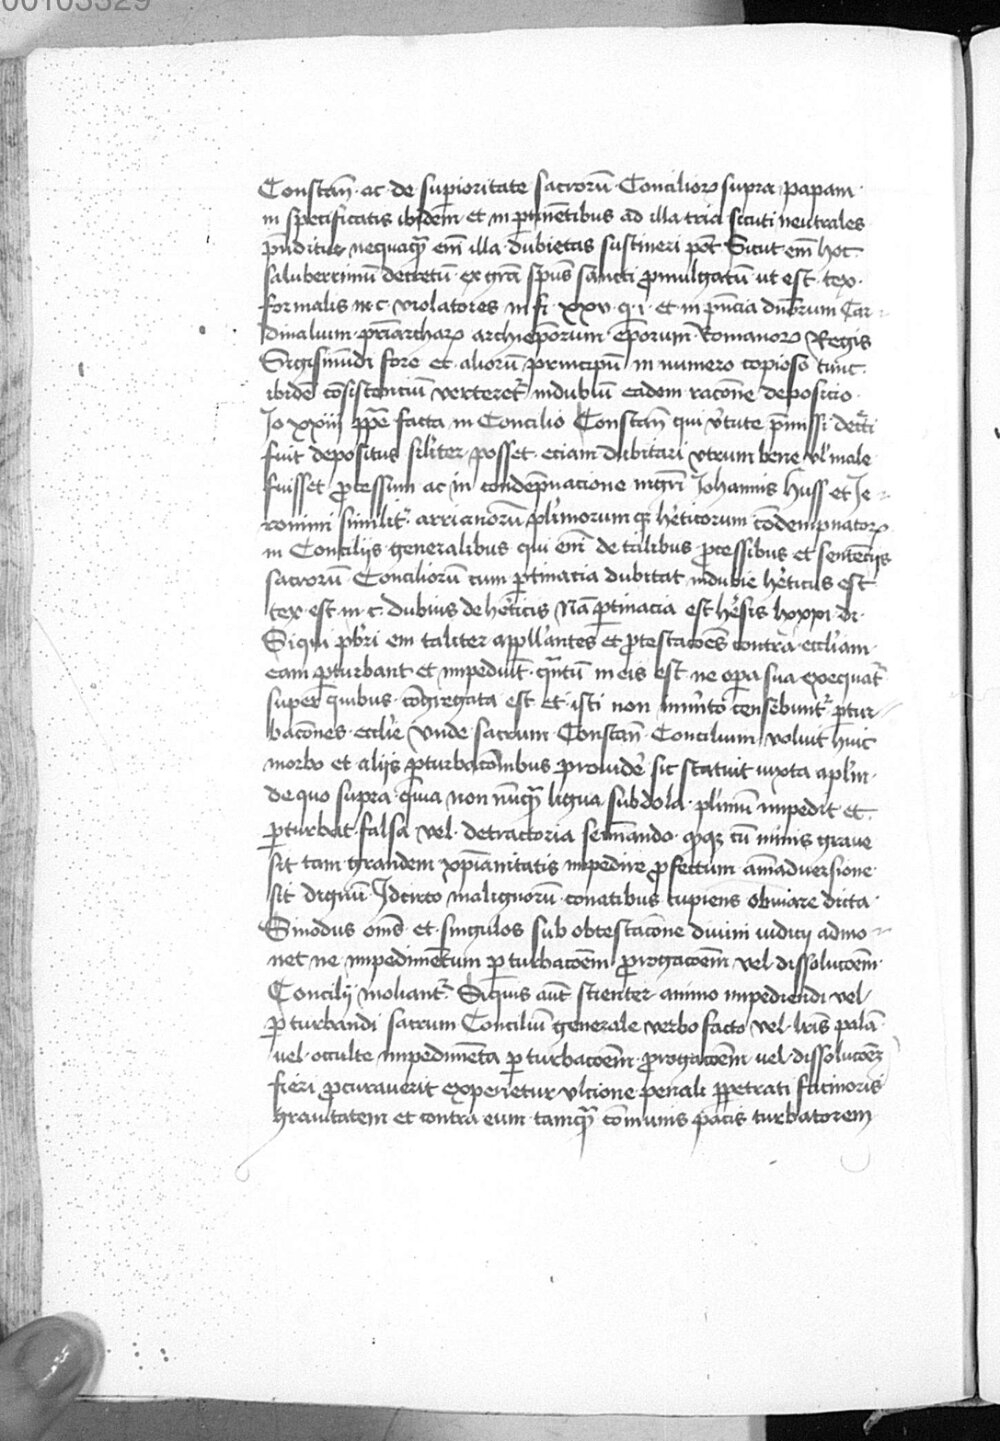 00103329
Constan̄ · ac · de supioritate sacrorū Concilioꝝ supra papam
in specificatis ibidem et in ꝑtinētibus ad illa tria sicuti neutrales
nequaqȝ em̄ illa dubietas sustineri pōt Sicut em̄ hoc
saluberrimū decretū ex grā spūs sancti ꝓmulgatū ut est tex ·
formalis in · c · violatores in fi xxv · q · i · et in pn̄cia dnōrum Car
dinalium pr̄iarchaꝝ archiepōrum epōrum Romanoꝝ Regis
Sigismūdi fore et alioru᷑ principū in numero copioso tunc
ibidē cōsistencium verteretᷣ in dubiū eadem racōne deposicio
Jo xxiii ꝑpe facta in Concilio Constan̄ qui v̓tute p̄missi decr̄ti
fuit depositus sil̓iter posset eciam dubitari vtrum bene vl̓ male
fuisset ꝓcessum ac in condēpnacione mgr̄i Johannis Huss et Je
ronimi similitᷣ arrianorū pl̓imorumqȝ he̓ticorum cōdempnatoꝝ
in Conciliis generalibus qui em̄ de talibus ꝓcessibus et sentēciis
sacrorū Conciliorū cum ꝑtinacia dubitat indubie he̓ticus est
tex est in · c · dubius de he̓ticis Nā ꝑtinacia est he̓sis
Siqui em̄ taliter appll̓antes et ꝓtestacōes contra eccl̓iam
eam ꝑturbant et impediūt qᷓntū in eis est ne oꝑa sua exequatᷣ
super quibus cōgregata est et isti non īmīto censēbuntᷣ ꝑtur
bacōnes eccl̓ie Unde sacrum Constan̄ Concilium voluit huic
morbo et aliis ꝑturbacōnibus ꝓuide̓ sic statuit iuxta apl̓m
de quo supra quia non nūqȝ ligua subdola pl̓imū impedit et
ꝑturbat falsa vel detractoria semīando qᷓqȝ cū nimis graue
sit tam grandem xp̄ianitatis impedire ꝓfectum aīaduersione
sit dignū Jdcirco malignorū conatibus cupiens obuiare dicta
Sinodus om̄s et singulos sub obtestacōne diuini iudicij admo
net ne impedimētum ꝑturbacōem ꝓrogacōem vel dissolucōem
Concilij moliantᷣ Siquis aūt scienter animo impediendi vel
ꝑturbandi sacrum Conciliū generale verbo facto vel lr̄is palā
uel occulte impedimēta ꝑturbacōem ꝓrogacōem uel dissolucōeȝ
fieri ꝓcurauerit experietur vlcione penali ꝑpetrati facinoris
grauitatem et contra eum tamqȝ cōmunis pacis turbatorem